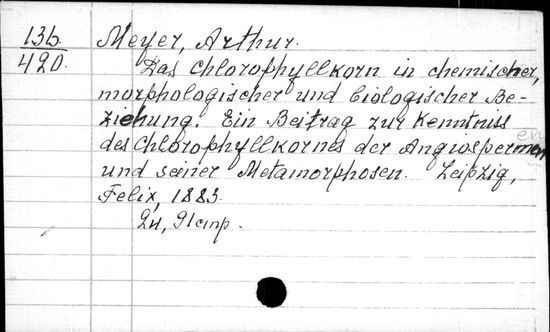 136 Meyer, Arthur.
420. Das Chlorophyllkorn in chemischer,
morphologischer und biologischer Be-
ziehung. Ein Beitrag zur Kenntniss
des Chlorophyllkornes der Angiospermen
und seiner Metamorphosen. Leipzig,
Felix, 1883.